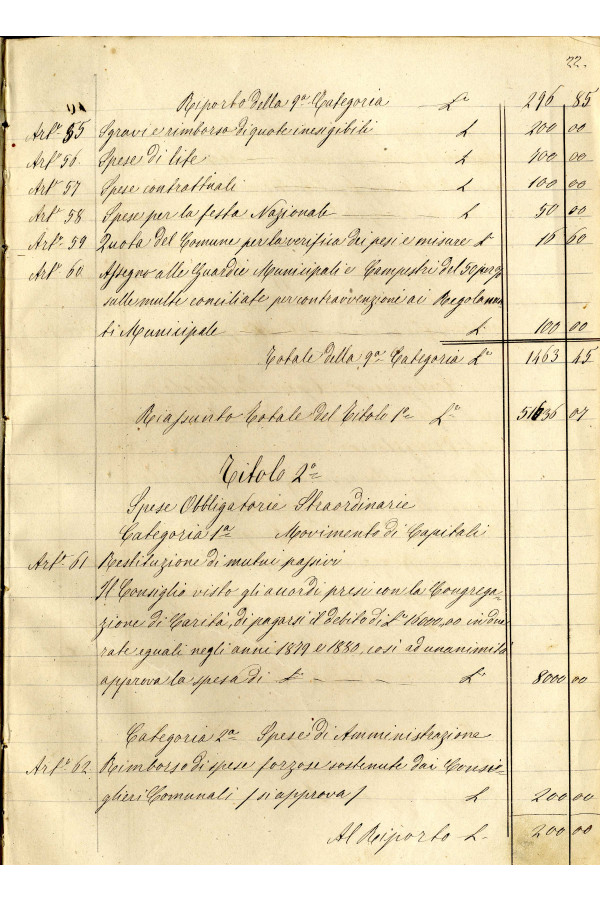 22.
Riporto della 9ª Categoria Lᵉ 296 85
Artº 55 Sgravi e rimborso di quote inesigibili L 200 00
Artº 56 Spese di lite L 700 00
Artº 57 Spese contrattuali L 100 00
Artº 58 Spese per la festa Nazionale L 50 00
Artº 59 Quota del Comune per la verifica dei pesi e misure L 16 60
Artº 60 Assegno alle Guardie Municipali e Campestri del 50 per %
sulle multe conciliate per contravvenzione ai Regolamen
ti Municipale L 100 00
Totale della 9ª Categoria Lᵉ 1463 45
Riassunto Totale del Titolo 1º Lᵉ 51636 07
Titolo 2º
Spese Obbligatorie Straordinarie
Categoria 1ª Movimento di Capitali
Artº 61 Restituzione di mutui passivi
Il Consiglio visto gli accordi presi con la Congrega-
zione di Carità, di pagarsi il debito di Lᵉ 16000,00 in due
rate eguali negli anni 1879 e 1880, così ad unanimità
approva la spesa di L 8000 00
Categoria 2ª Spese di Amministrazione
Artº 62 Rimborso di spese forzose sostenute dai Consi-
glieri Comunali (si approva) L 200 00
Al Riporto L. 200 00